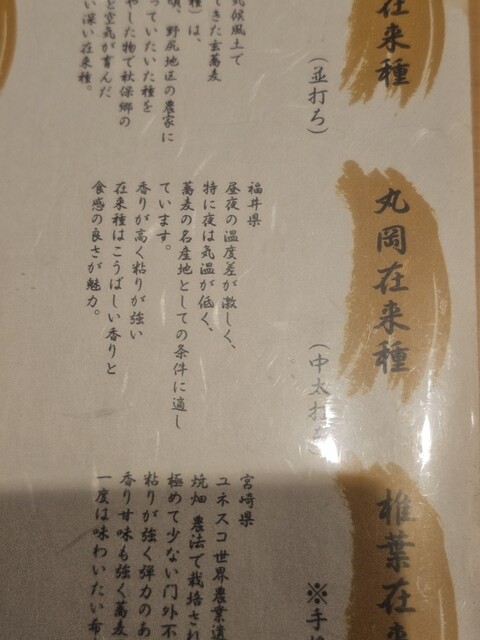 在来種
(並打ち)
気候風土で
てきた玄蕎麦
種)は、
頃、野尻地区の農家に
っていたいた種を
やした物で秋保郷の
と空気が育んだ
い深い在来種。
丸岡在来種
(中太打ち)
福井県
昼夜の温度差が激しく、
特に夜は気温が低く、
蕎麦の名産地としての条件に適し
ています。
香りが高く粘りが強い
在来種はこうばしい香りと
食感の良さが魅力。
椎葉在来
※手
宮崎県
ユネスコ世界農業遺
焼畑 農法で栽培され
極めて少ない門外不
粘りが強く弾力のあ
香り甘味も強く蕎麦
一度は味わいたい希